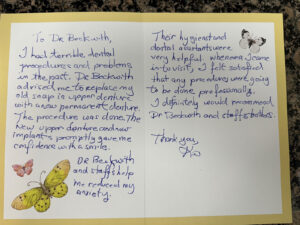 To Dr Beckwith,
I had terrible dental
procedures and problems
in the past. Dr Beckwith
advised me to replace my
old snap in upper denture
with a new permanent denture.
The procedure was done. The
new upper denture and new
implants promptly gave me
confidence with a smile.
Dr Beckwith
and staffs help
me reduced my
anxiety.
Their hygienist and
dental assistants were
very helpful. Whenever I came
in to visit, I felt satisfied
that any procedures were going
to be done professionally.
I definitely would recommend
Dr Beckwith and staffs to others.
Thank you,